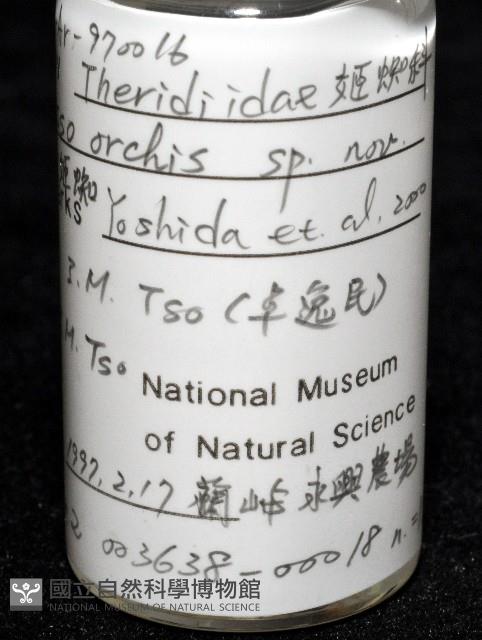 Ar-970016
Theridiidae 姬蛛科
so orchis sp. nov.
姬蛛
KS Yoshida et. al. 2000
I.M. Tso (卓逸民)
M. Tso
National Museum
of Natural Science
1997.2.17 蘭嶼永興農場
2 003638-00018 n. =
國立自然科學博物館
NATIONAL MUSEUM OF NATURAL SCIENCE